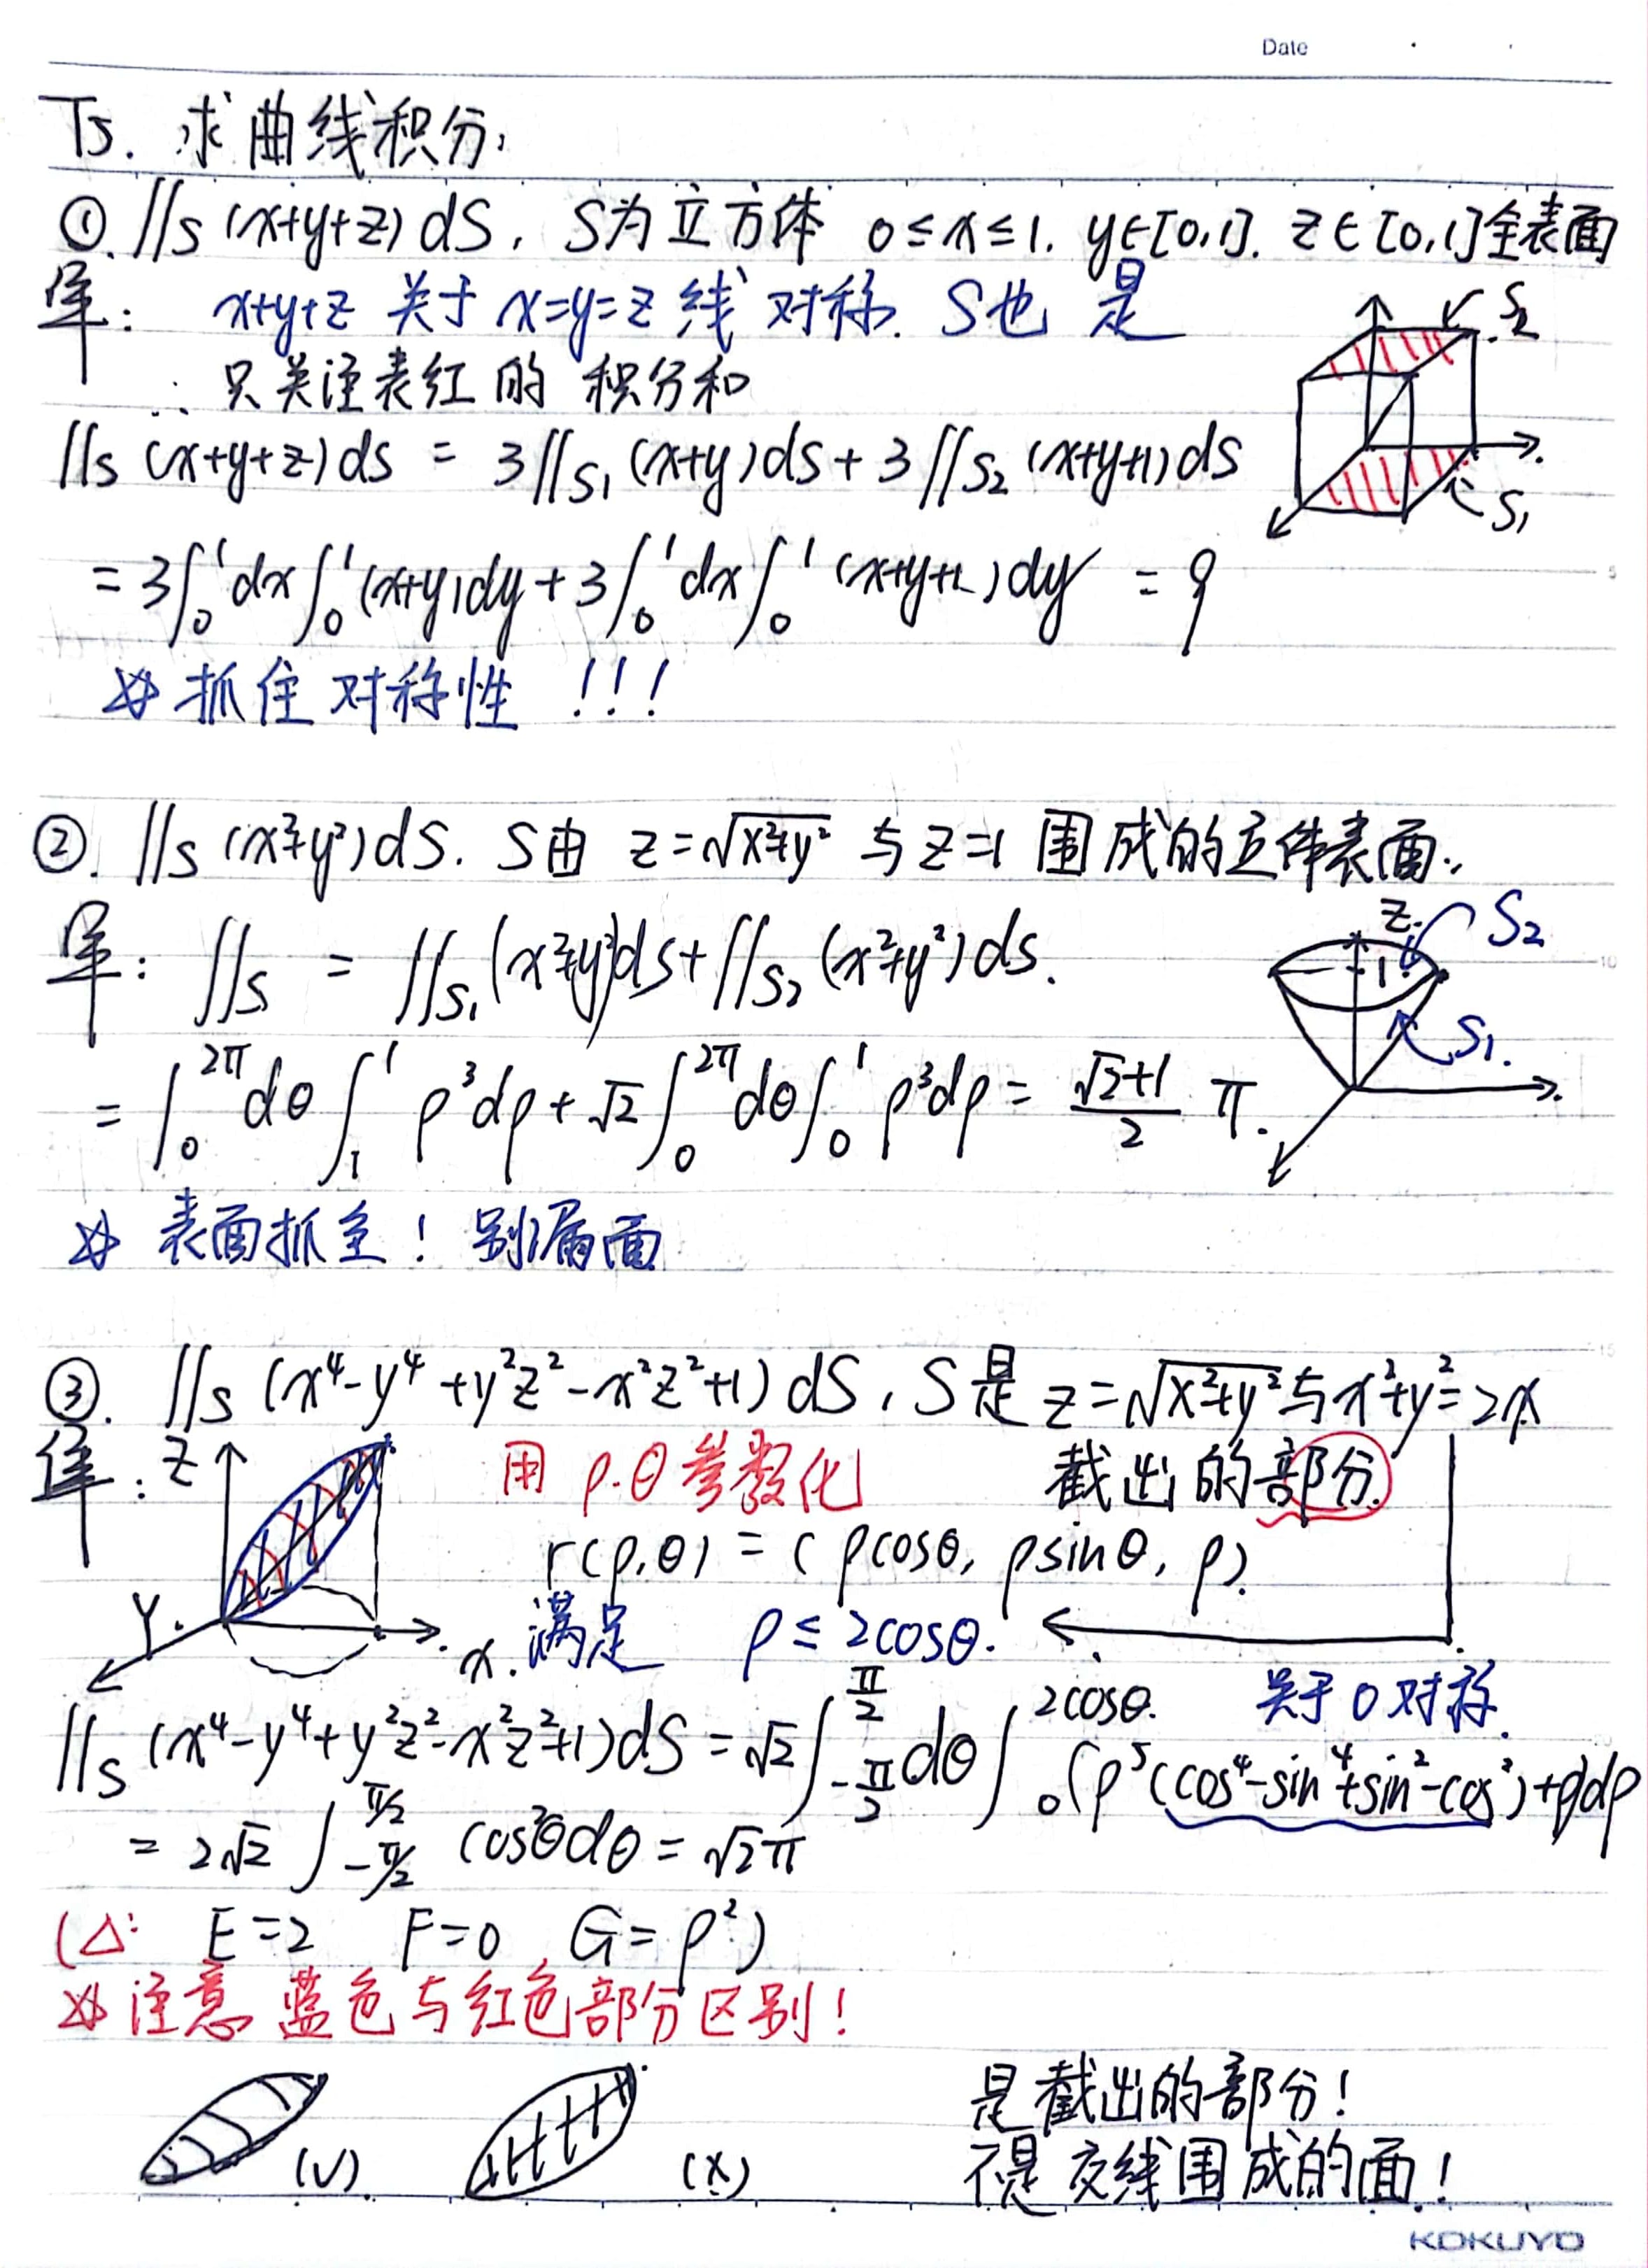 Date
T5. 求曲线积分,
①. ∬s (x+y+z) dS, S为立方体 0≤x≤1. y∈[0,1]. z∈[0,1]全表面
解: x+y+z 关于 x=y=z 线 对称. S也是
∴ 只关注表红的积分和
S₂
∬s (x+y+z) ds = 3∬S₁ (x+y)ds + 3∬S₂ (x+y+1)ds
S₁
= 3∫₀¹dx∫₀¹(x+y)dy + 3∫₀¹dx∫₀¹(x+y+1)dy = 9
抓住对称性 !!!
②. ∬s (x²+y²)dS. S由 z=√(x²+y²) 与z=1 围成的立体表面.
解: ∬s = ∬S₁ (x²+y²)ds + ∬S₂ (x²+y²)ds.
z 1 S₂
S₁.
= ∫₀^2π dθ ∫₁¹ ρ³dρ + √2 ∫₀^2π dθ ∫₀¹ ρ³dρ = (√2+1)/2 π.
表面抓全! 别漏面
③. ∬s (x⁴-y⁴+y²z²-x²z²+1) dS, S是 z=√(x²+y²)与x²+y²=2x
解: Z 用 ρ.θ参数化 截出的部分.
r(ρ,θ) = (ρcosθ, ρsinθ, ρ).
Y. x. 满足 ρ≤2cosθ.
关于0对称.
∬s (x⁴-y⁴+y²z²-x²z²+1)dS = √2∫_{-π/2}^{π/2}dθ∫₀^{2cosθ.}(ρ⁵(cos⁴-sin⁴+sin²-cos²)+ρ)dρ
= 2√2 ∫_{-π/2}^{π/2} cos²θdθ = √2π
(△: E=2 F=0 G=ρ²)
注意 蓝色与红色部分区别!
(√) (×) 是截出的部分!
不是交线围成的面!
KOKUYO